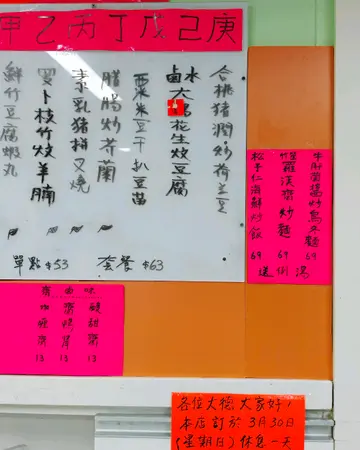 甲乙丙丁戊己庚
合桃豬潤炒荷兰豆
鹵水大 花生炆豆腐
粟米豆干扒豆苗
腊腸炒芥蘭
素乳豬拼叉燒
罗卜枝竹炆羊腩
鮮竹豆腐蝦丸
單點$53 套餐$63
牛肝菌醬炒烏冬麵 69
羅漢齋炒麵 69
松子仁海鮮炒飯 69
送例湯
齋鹵味
酸甜齋 13
齋鴨腎 13
13
各位大德大家好，
本店訂於3月30日
(星期日)休息一天